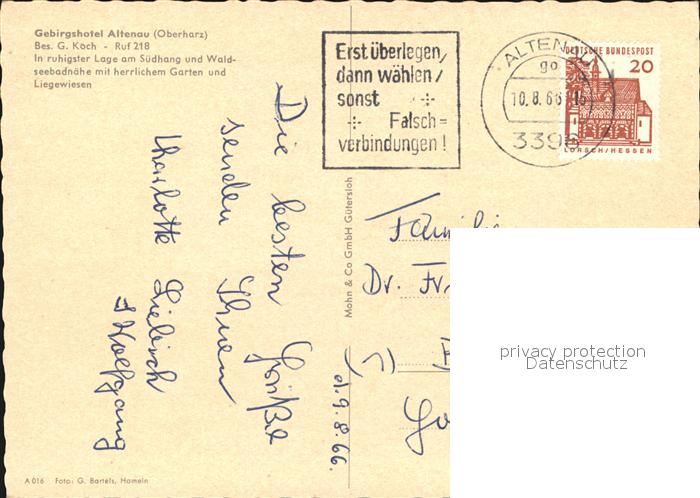 Gebirgshotel Altenau (Oberharz)
Bes. G. Koch - Ruf 218
In ruhigster Lage am Südhang und Wald-
seebadnähe mit herrlichem Garten und
Liegewiesen
Erst überlegen,
dann wählen,
sonst
Falsch=
verbindungen!
ALTENAU
go
10.8.66
3396
DEUTSCHE BUNDESPOST
20
LORSCH/HESSEN
Die besten Grüße
senden Ihnen
Charlotte Liebisch
Wolfgang
d. 9.8.66.
Mohn & Co GmbH Gütersloh
Familie
Dr. Fr
privacy protection
Datenschutz
A 016 Foto: G. Bartels, Hameln